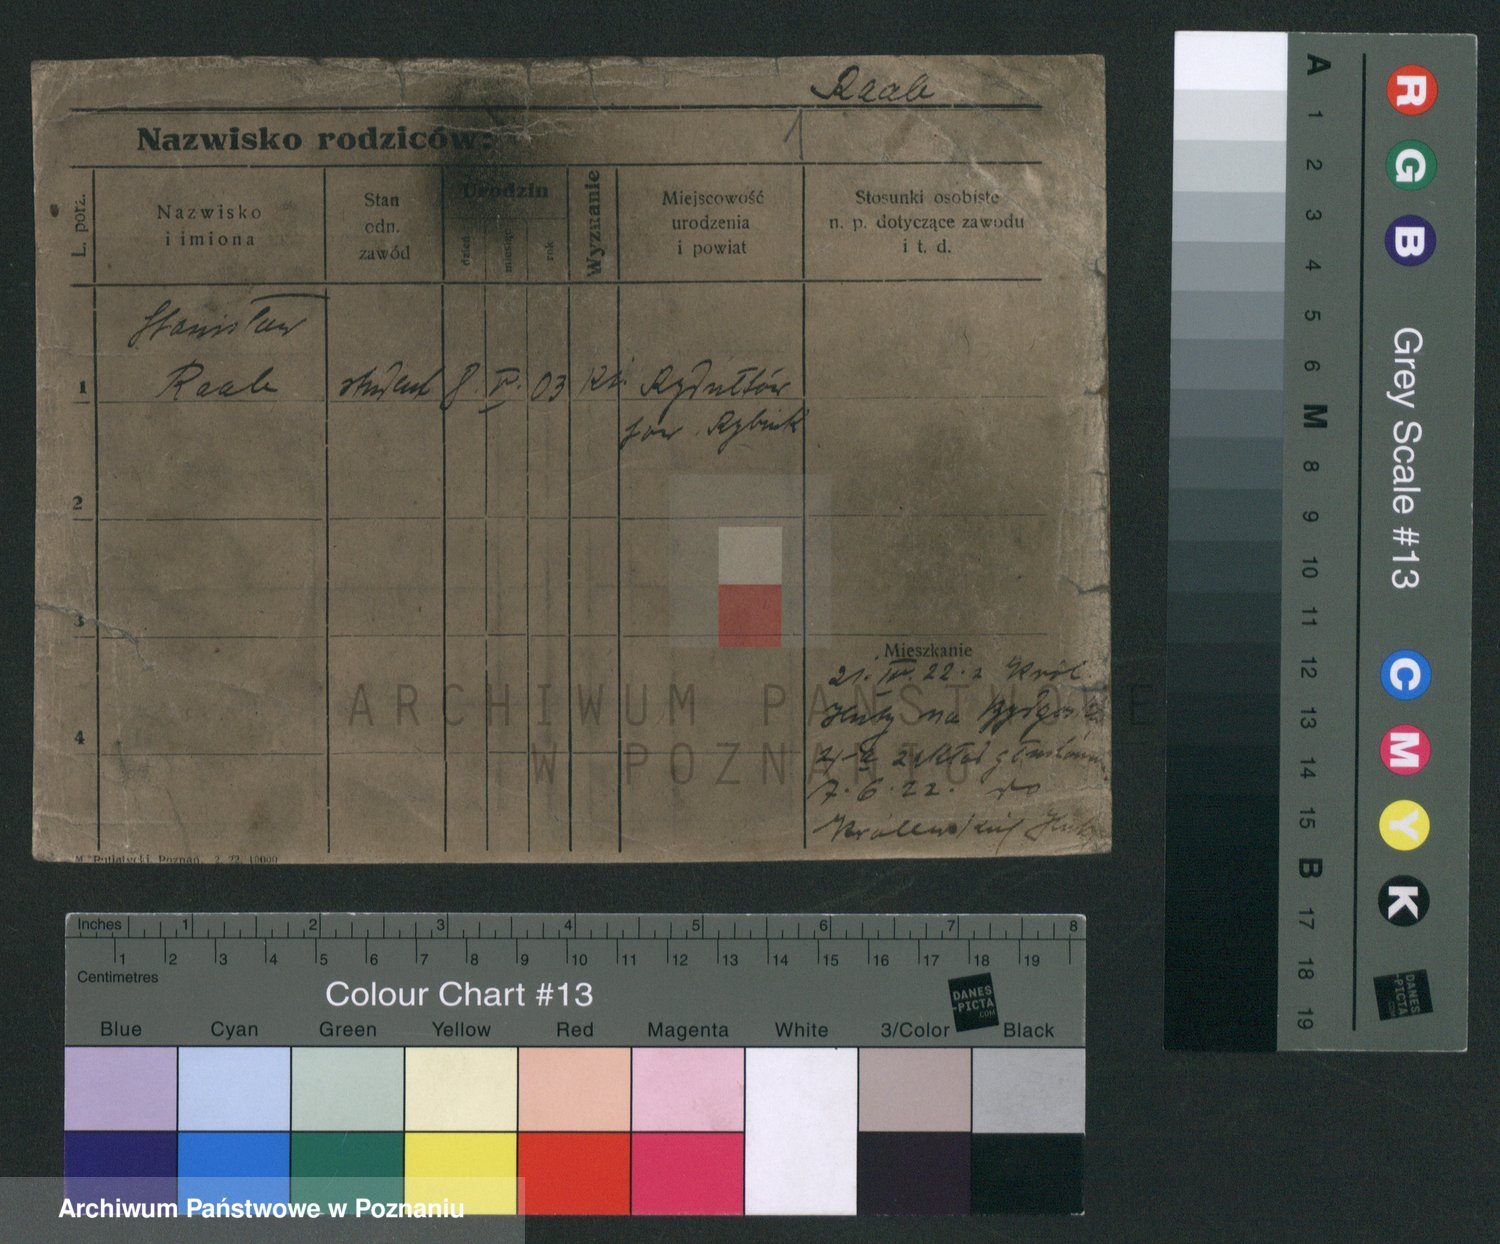 Raab
Nazwisko rodziców:
1
L. porz.
Nazwisko
i imiona
Stan
odn.
zawód
Urodzin
dzień
miesiąc
rok
Wyznanie
Miejscowość
urodzenia
i powiat
Stosunki osobiste
n. p. dotyczące zawodu
i t. d.
Stanisław
1 Raab student 8. V. 03 Kt. Rydułtów
pow. Rybnik
2
3
4
Mieszkanie
21. IV. 22. z Król.
Huty na
7. 6. 22. do
Królewskiej Huty
M. Putiatycki, Poznań. 2. 22. 10000
ARCHIWUM PAŃSTWOWE
W POZNANIU
Inches 1 2 3 4 5 6 7 8
1 2 3 4 5 6 7 8 9 10 11 12 13 14 15 16 17 18 19
Centimetres
Colour Chart #13
DANES
-PICTA
.COM
Blue Cyan Green Yellow Red Magenta White 3/Color Black
Archiwum Państwowe w Poznaniu
A 1 2 3 4 5 6 M 8 9 10 11 12 13 14 15 B 17 18 19
R G B Grey Scale #13 C M Y K
DANES
-PICTA
.COM